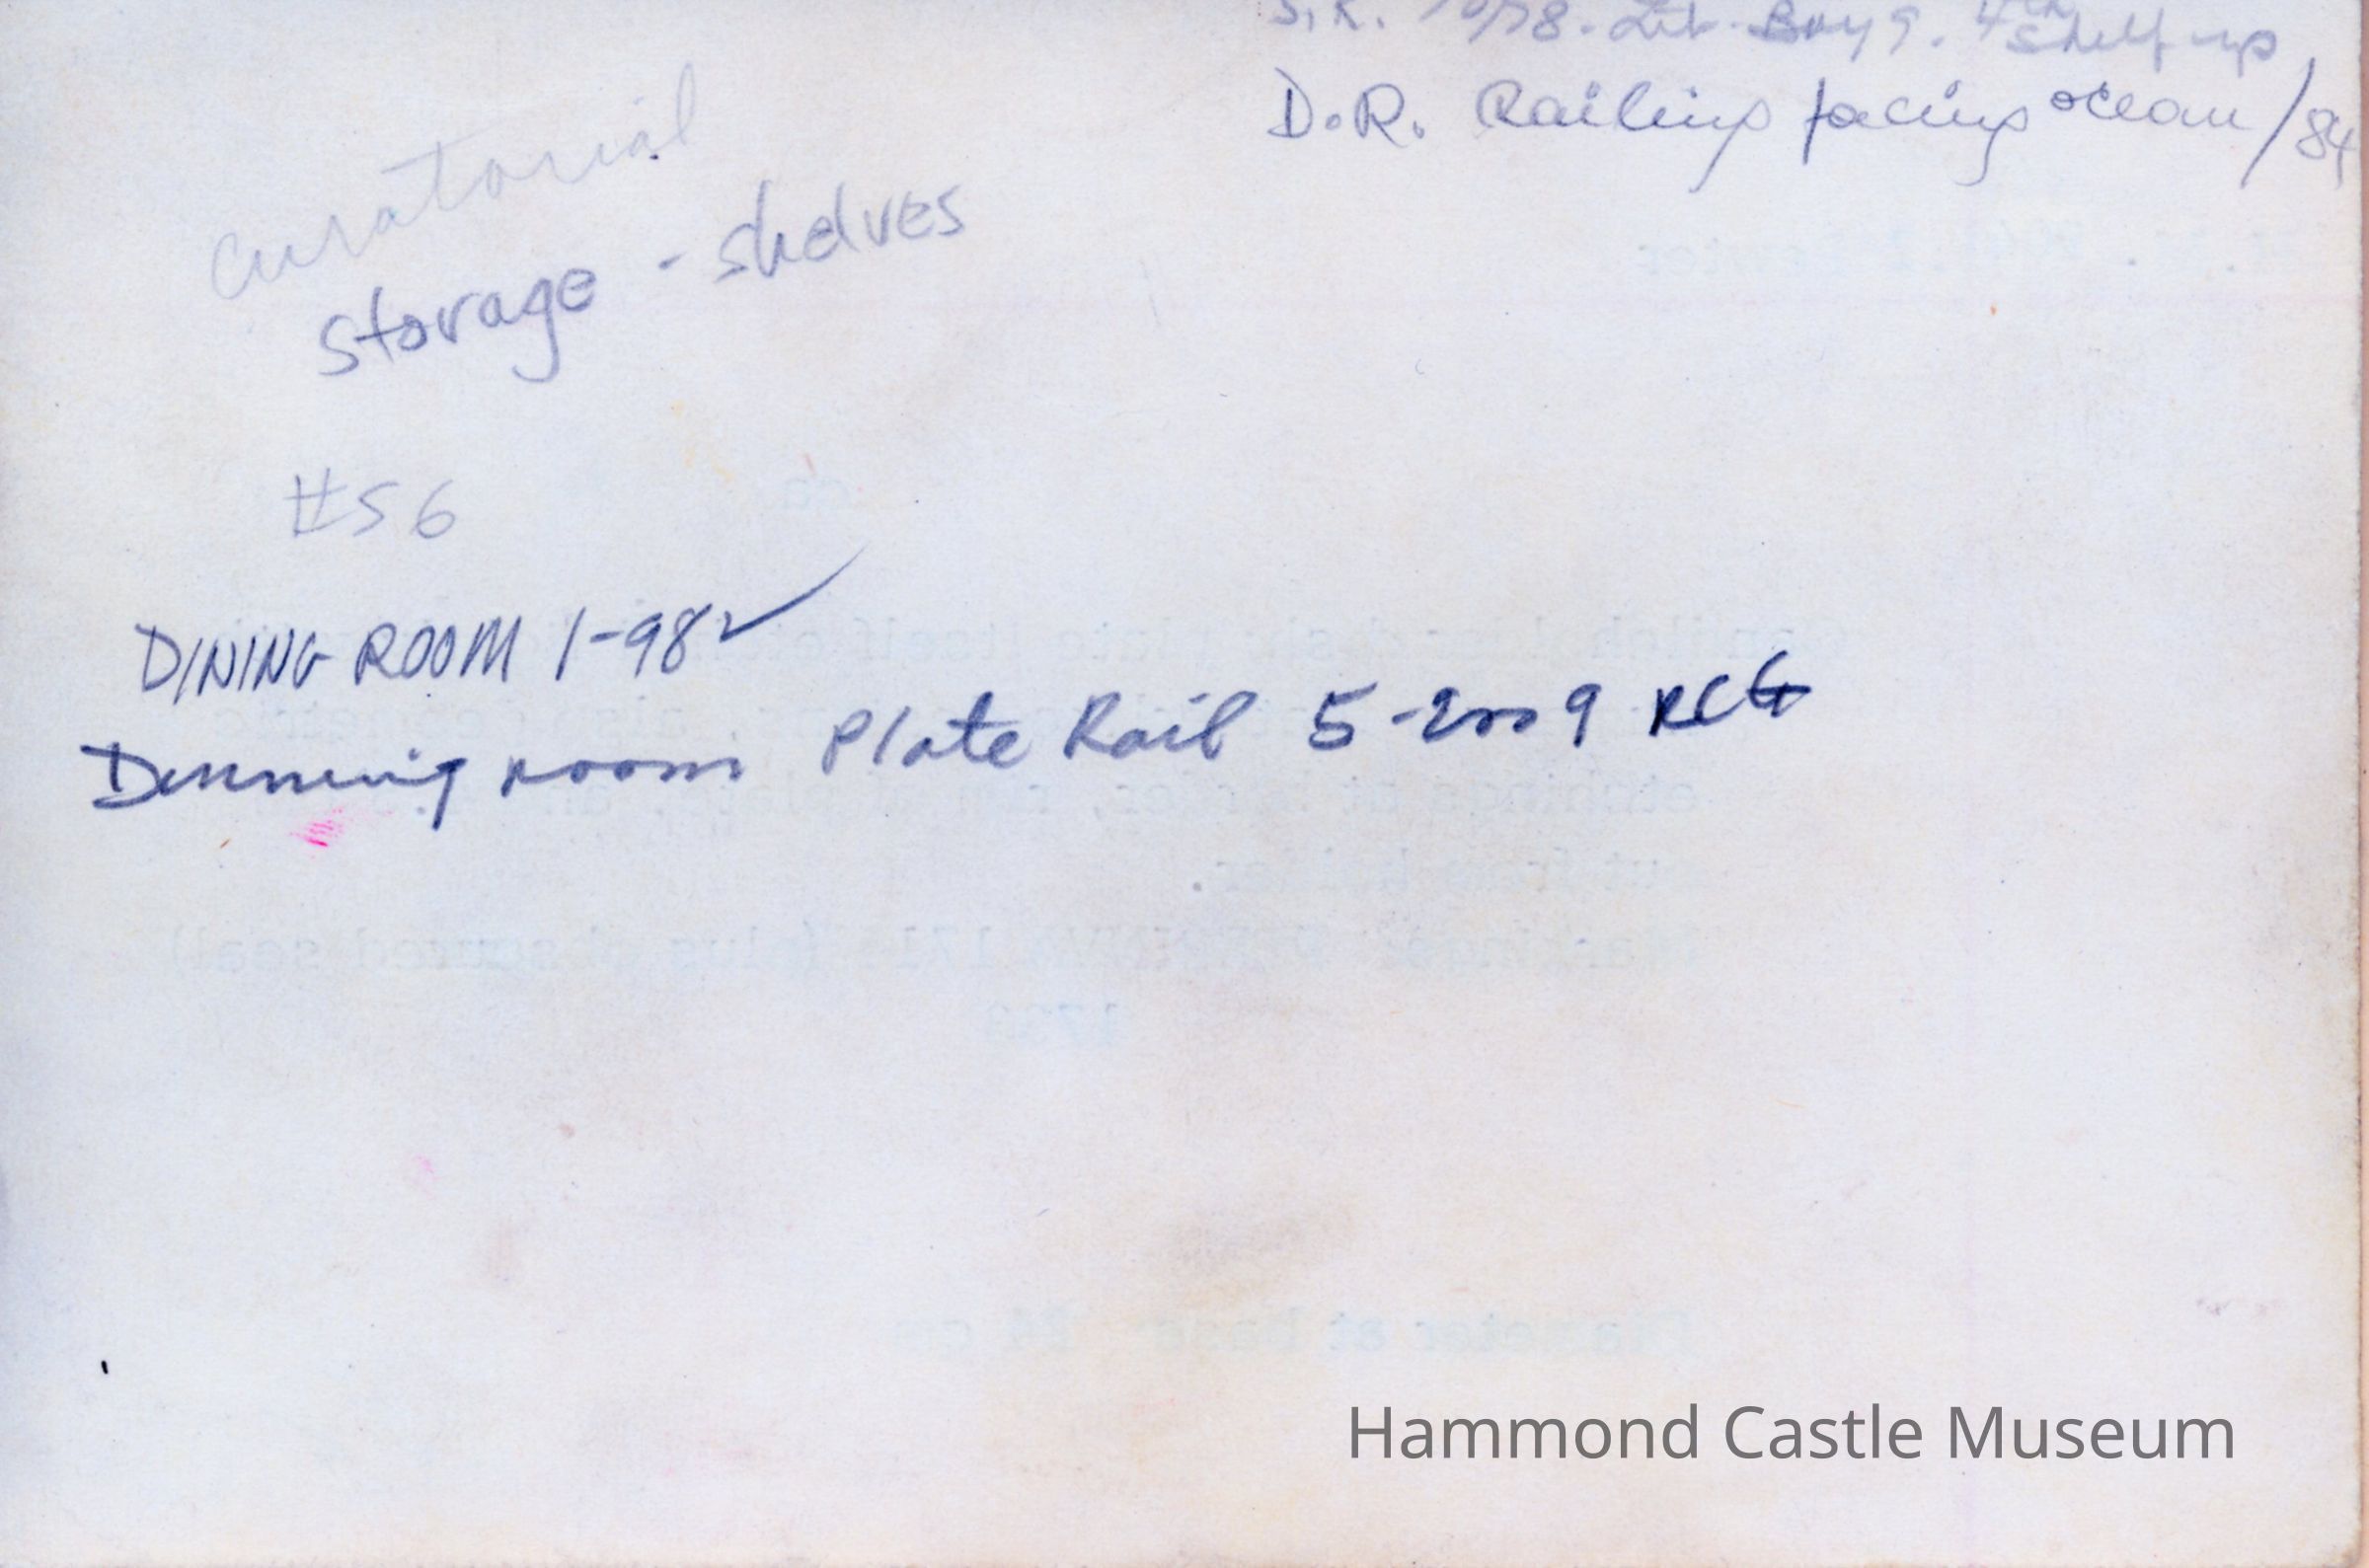 S.R. 10/78. Lib. Bay 9. 4th Shelf up
D.R. Railing facing ocean/84
Curatorial
Storage - shelves
#56
DINING ROOM 1-98 ✓
Dinning room Plate Rail 5-2009 RCG
Hammond Castle Museum